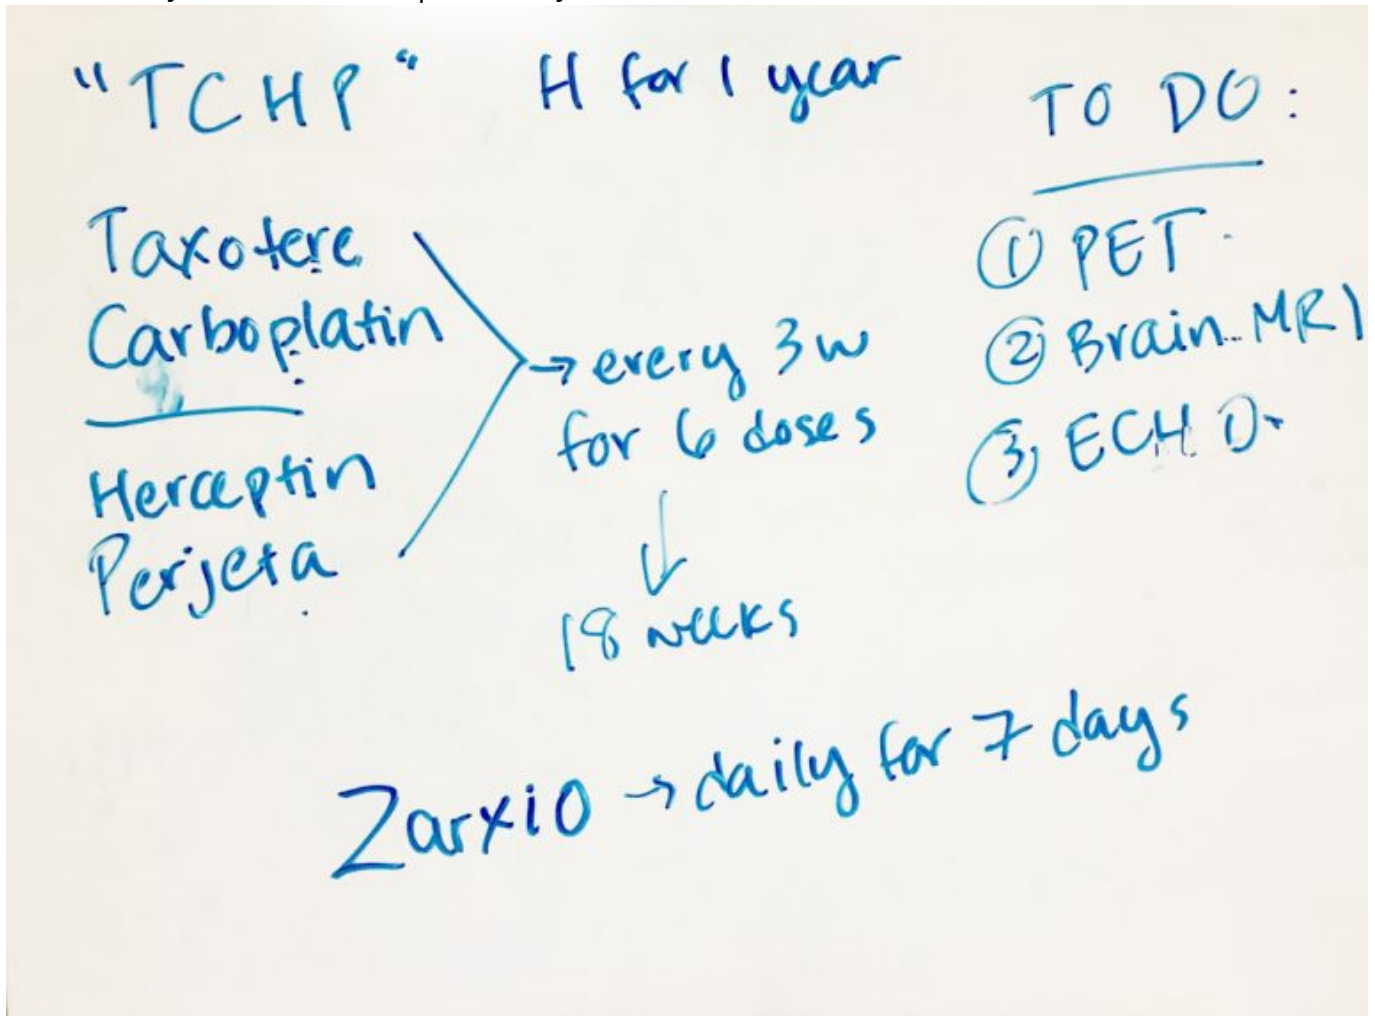 "TCHP"
H for 1 year
Taxotere
Carboplatin
Herceptin
Perjeta
→ every 3w
for 6 doses
↓
18 weeks
TO DO:
① PET
② Brain MRI
③ ECHO
Zarxio → daily for 7 days